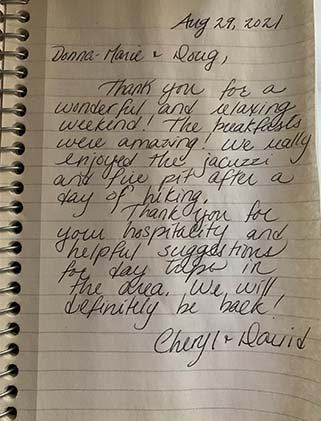 Aug 29, 2021
Donna-Marie & Doug,
Thank you for a
wonderful and relaxing
weekend! The breakfasts
were amazing! We really
enjoyed the jacuzzi
and fire pit after a
day of hiking.
Thank you for
your hospitality and
helpful suggestions
for day trips in
the area. We will
definitely be back!
Cheryl & David